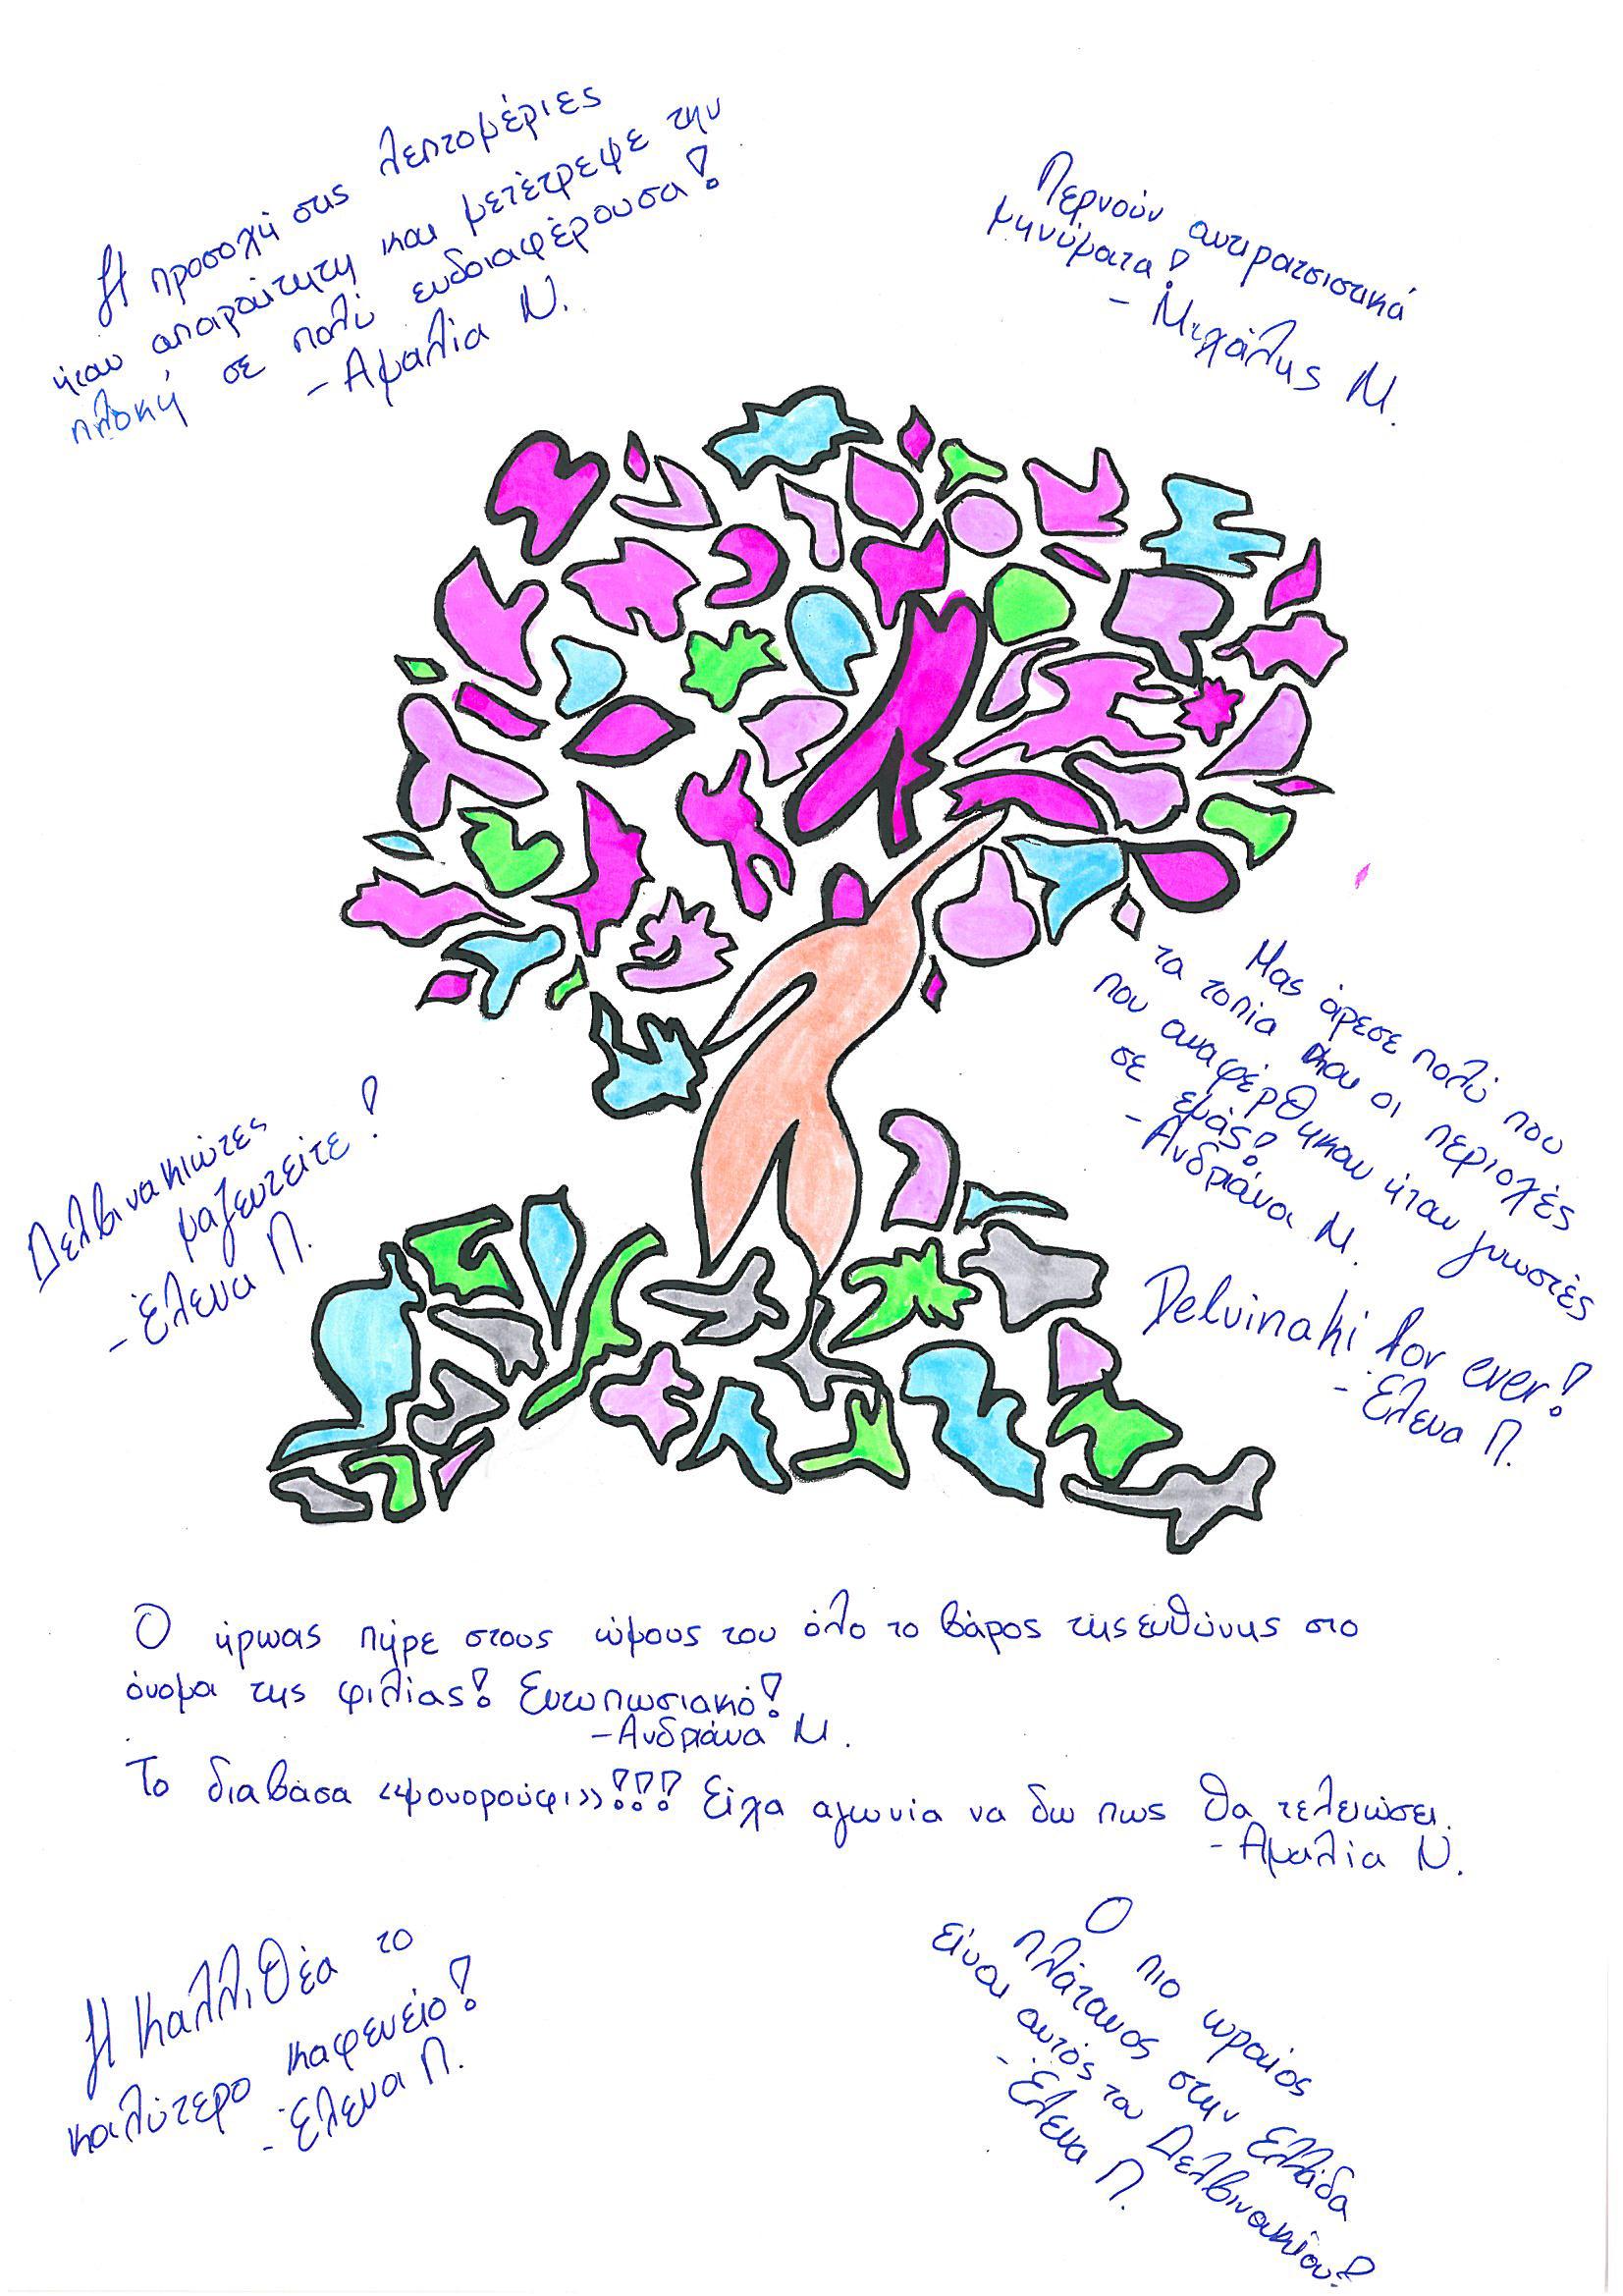 Η προσοχή στις λεπτομέριες
ήταν απαραίτητη και μετέτρεψε την
πλοκή σε πολύ ενδοιαφέρουσα!
-Αμαλία Ν.
Περνούν αντιρατσιστικά
μηνύματα!
- Μιχάλης Μ.
Μας άρεσε πολύ που
τα τοπία και οι περιοχές
που αναφέρθηκαν ήταν γνωστές
σε εμάς!
-Ανδριάνα Μ.
Δελβινακιώτες
μαζευτείτε!
-Έλενα Π.
Delvinaki for ever!
-Έλενα Π.
Ο ήρωας πήρε στους ώμους του όλο το βάρος της ευθύνης στο
όνομα της φιλίας! Εντυπωσιακό!
-Ανδριάνα Μ.
Το διάβασα «μονορούφι»!!! Είχα αγωνία να δω πως θα τελειώσει.
- Αμαλία Ν.
Η Καλλιθέα το
καλύτερο καφενείο!
-Έλενα Π.
Ο πιο ωραίος
πλάτανος στην Ελλάδα
είναι αυτός του Δελβινακίου!
-Έλενα Π.